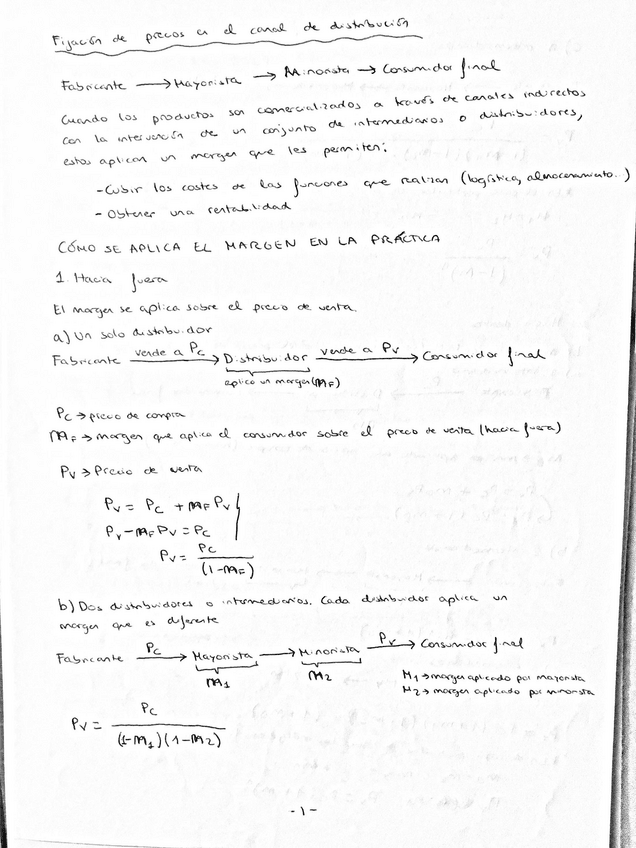 Fijación de precios en el canal de distribución
Fabricante → Mayorista → Minorista → Consumidor final
Cuando los productos son comercializados a través de canales indirectos
con la intervención de un conjunto de intermediarios o distribuidores,
estos aplican un margen que les permiten:
-Cubrir los costes de las funciones que realizan (logística, almacenamiento..)
- Obtener una rentabilidad
CÓMO SE APLICA EL MARGEN EN LA PRÁCTICA
1. Hacia fuera
El margen se aplica sobre el precio de venta.
a) Un solo distribuidor
Fabricante vende a Pc → Distribuidor vende a Pv → Consumidor final
aplica un margen (mF)
Pc → precio de compra
mF → margen que aplica el consumidor sobre el precio de venta (hacia fuera)
Pv → Precio de venta
Pv = Pc + mF Pv
Pv - mF Pv = Pc
Pv = Pc / (1-mF)
b) Dos distribuidores o intermediarios. Cada distribuidor aplica un
margen que es diferente
Fabricante Pc → Mayorista → Minorista Pv → Consumidor final
m1 m2
M1 → margen aplicado por mayorista
M2 → margen aplicado por minorista
Pv = Pc / (1-m1)(1-m2)
-1-